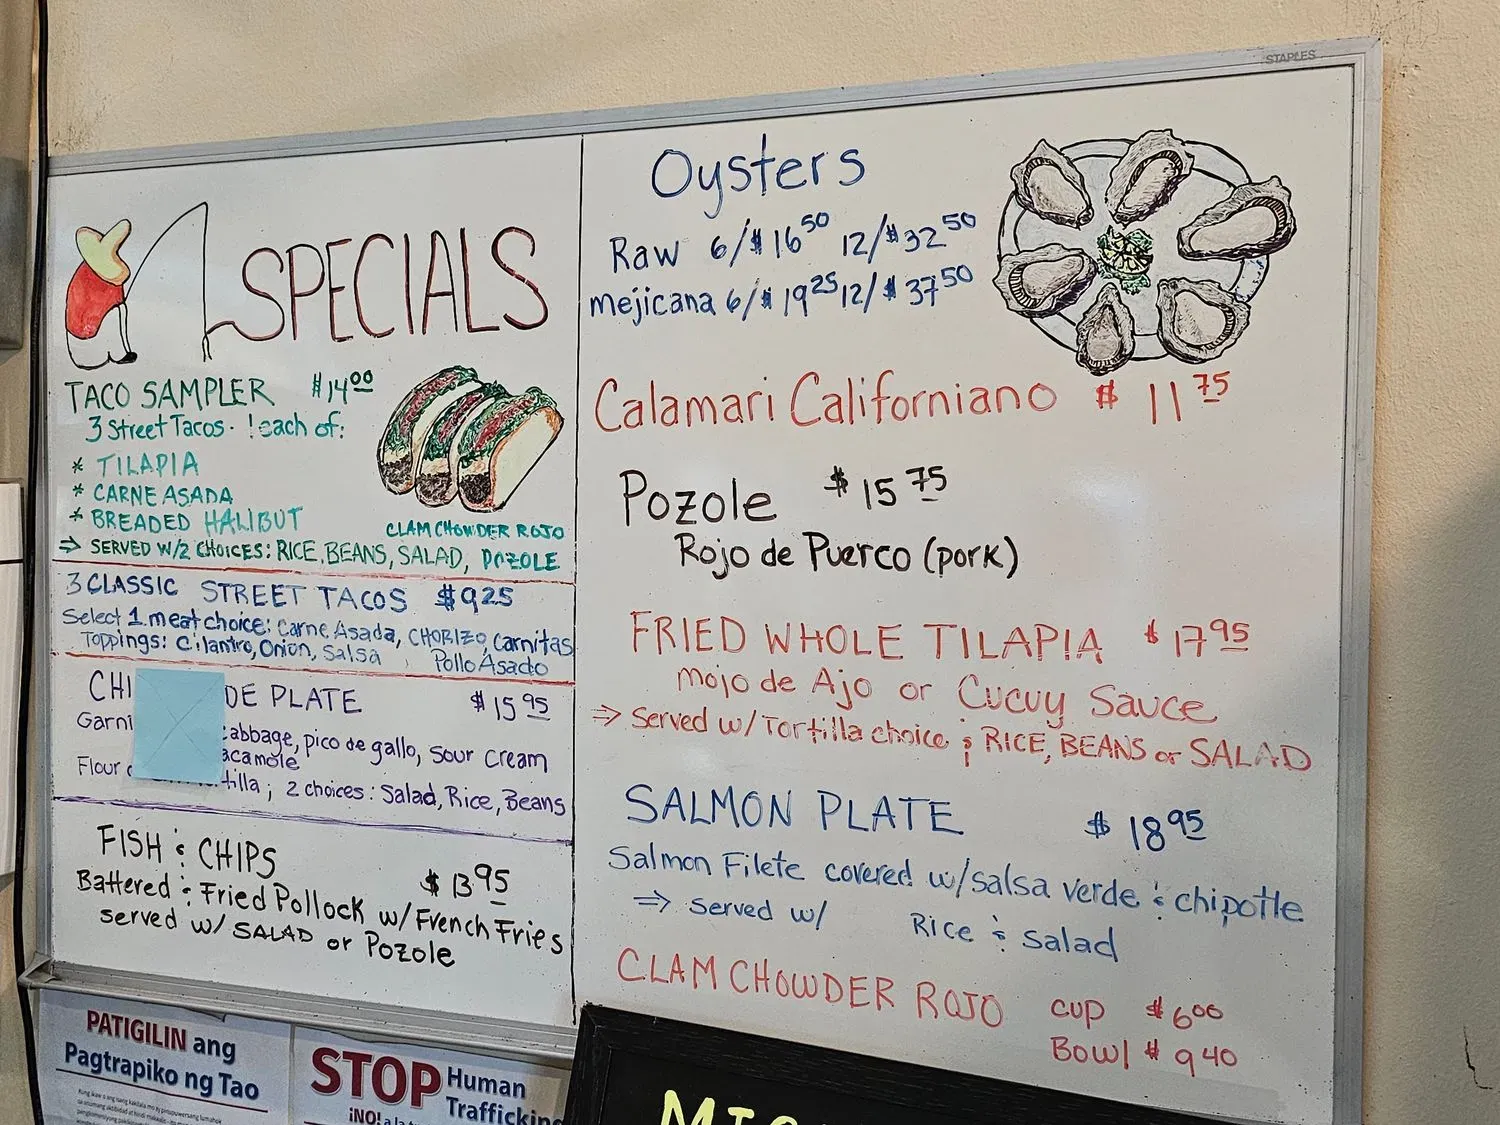 STAPLES
SPECIALS
TACO SAMPLER $14.00
3 Street Tacos. 1 each of:
* TILAPIA
* CARNE ASADA
* BREADED HALIBUT
CLAM CHOWDER ROJO
⇒ SERVED W/2 CHOICES: RICE, BEANS, SALAD, POZOLE
3 CLASSIC STREET TACOS $9.25
Select 1 meat choice: Carne Asada, CHORIZO, Carnitas
Toppings: Cilantro, Onion, Salsa, Pollo Asado
CHI DE PLATE $15.95
Garni cabbage, pico de gallo, sour cream
acamole
Flour tilla; 2 choices: Salad, Rice, Beans
FISH & CHIPS $13.95
Battered & Fried Pollock w/French Fries
served w/ SALAD or Pozole
Oysters
Raw 6/$16.50 12/$32.50
mejicana 6/$19.25 12/$37.50
Calamari Californiano $11.75
Pozole $15.75
Rojo de Puerco (pork)
FRIED WHOLE TILAPIA $17.95
Mojo de Ajo or Cucuy Sauce
⇒ Served w/Tortilla choice & RICE, BEANS or SALAD
SALMON PLATE $18.95
Salmon Filete covered w/salsa verde & chipotle
⇒ served w/ Rice & Salad
CLAM CHOWDER ROJO cup $6.00
Bowl $9.40
PATIGILIN ang
Pagtrapiko ng Tao
STOP Human
Trafficking
¡NO! a la